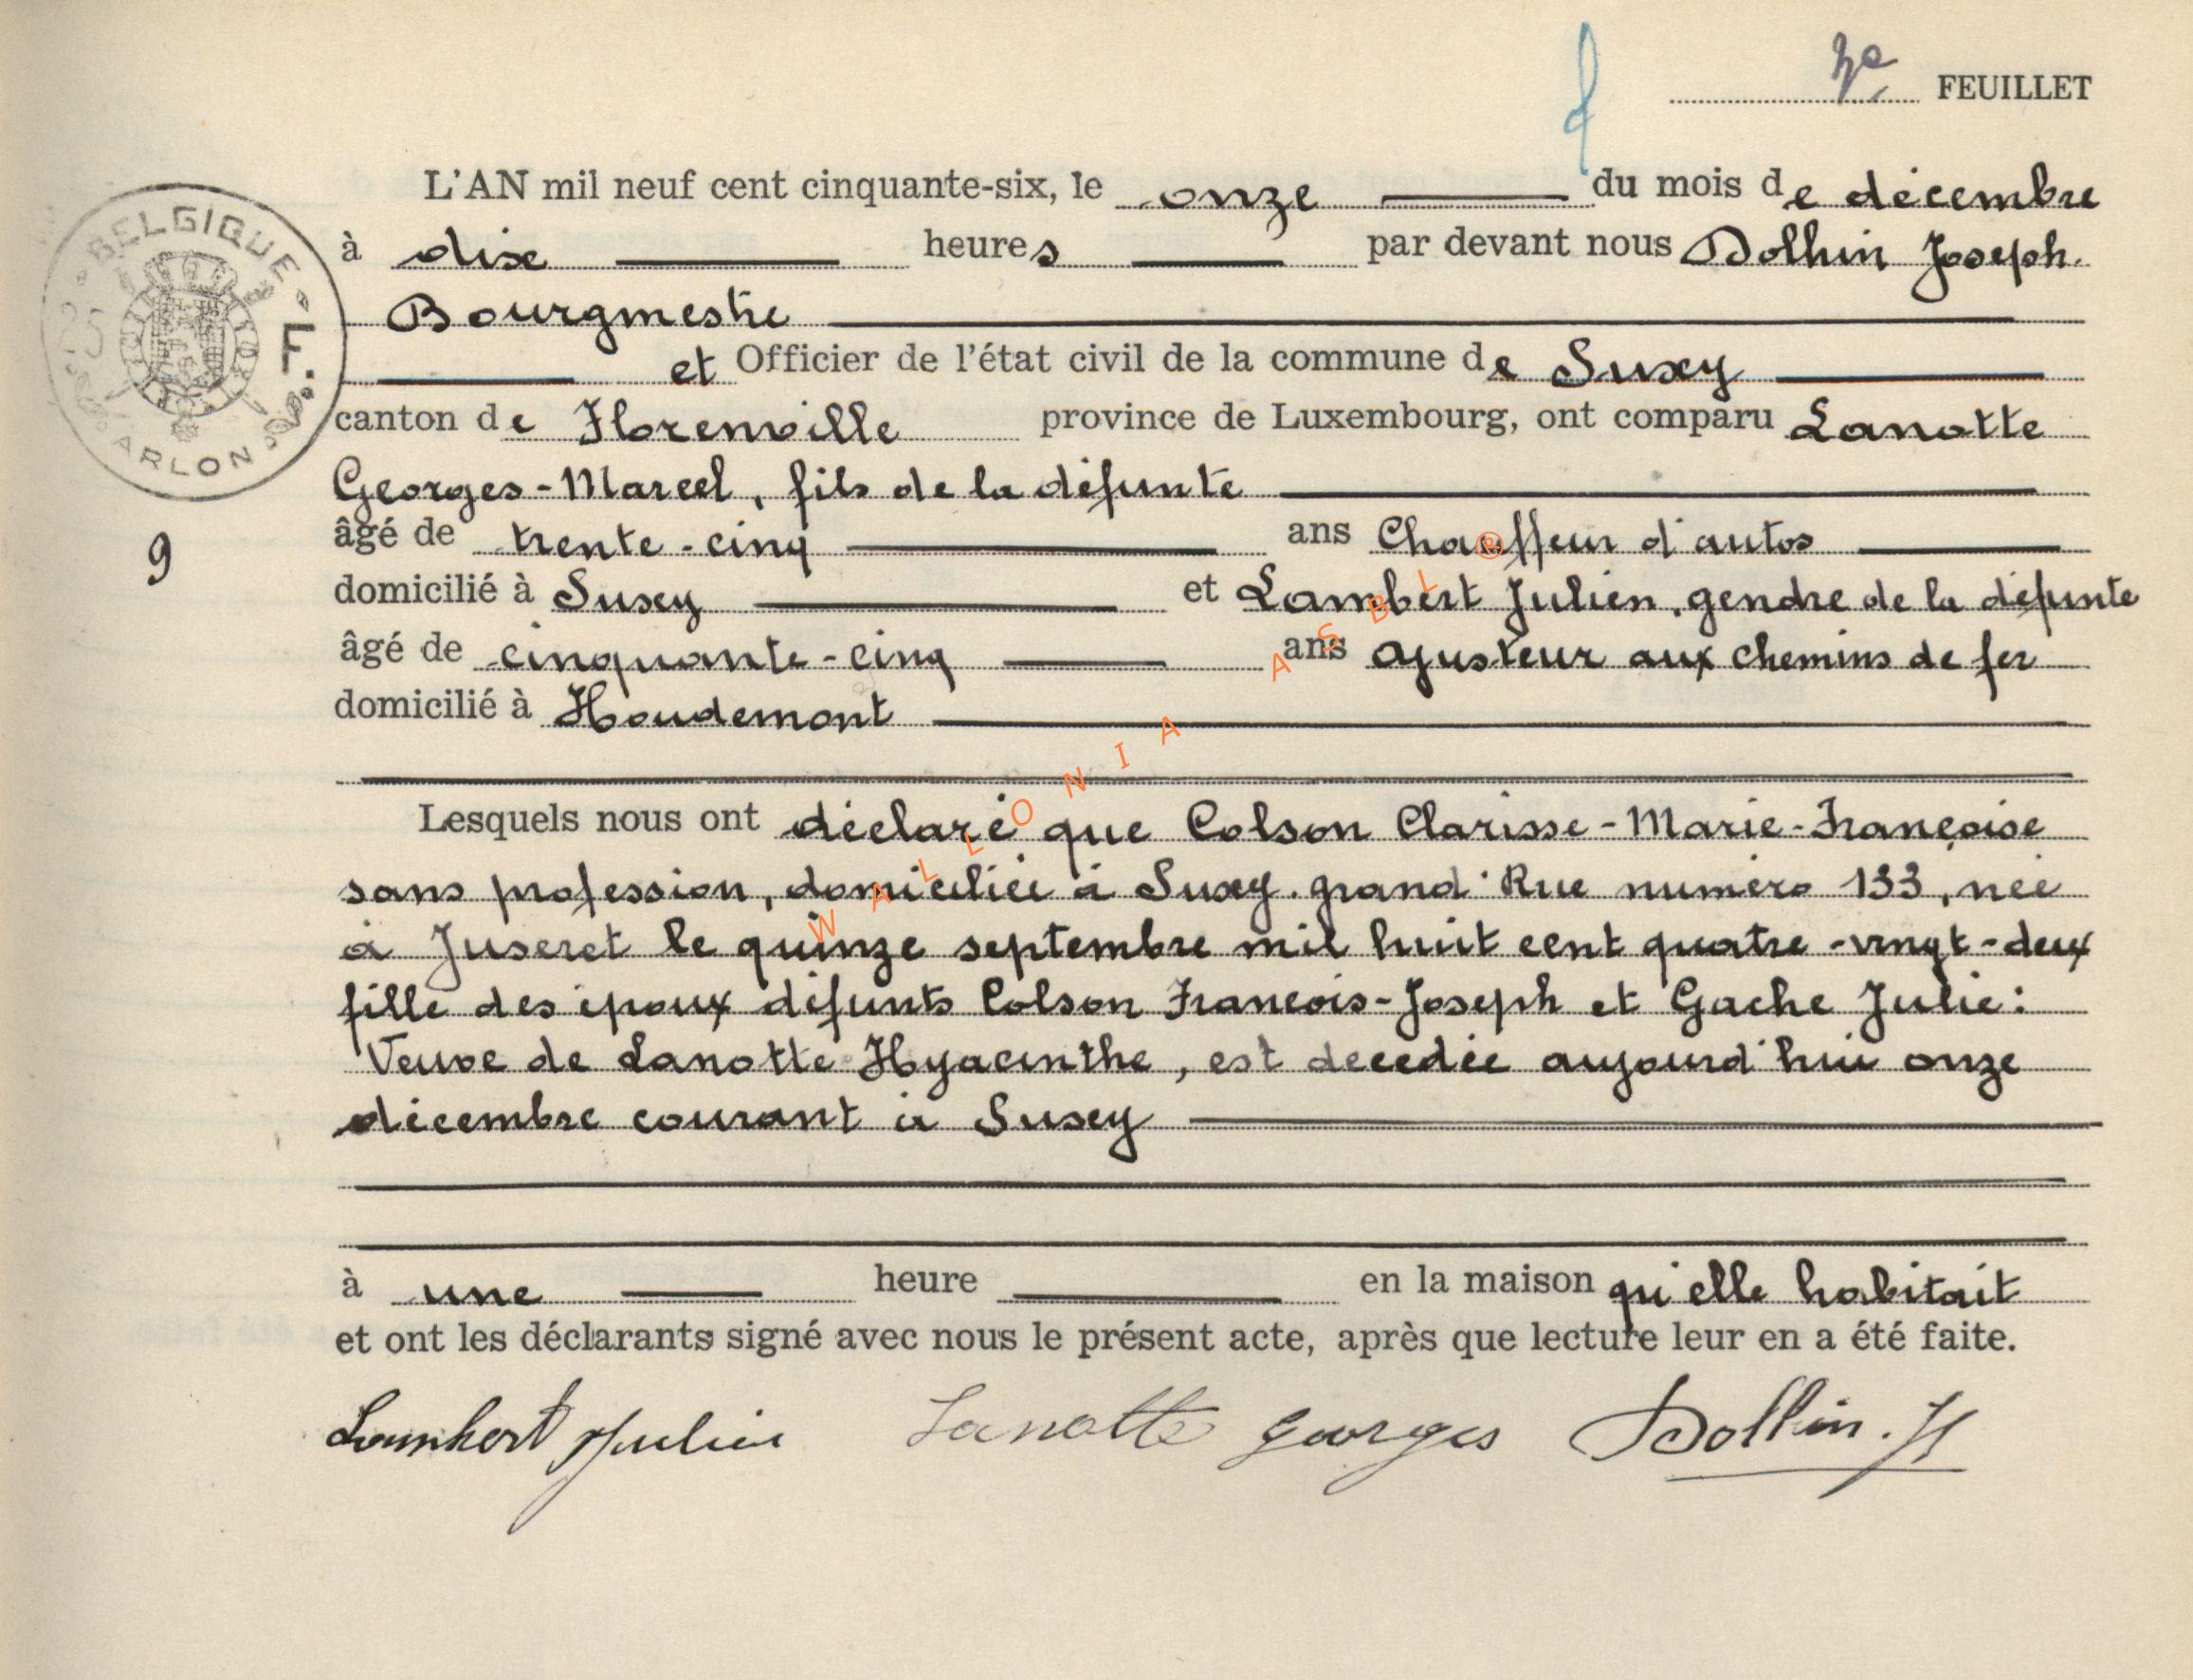 FEUILLET
L'AN mil neuf cent cinquante-six, le onze du mois de décembre
à dix heures par devant nous Dolhin Joseph.
Bourgmestre
et Officier de l'état civil de la commune de Suxy
canton de Florenville province de Luxembourg, ont comparu Lanotte
Georges-Marcel, fils de la défunte
âgé de trente-cinq ans Chauffeur d'autos
domicilié à Suxy et Lambert Julien, gendre de la défunte
âgé de cinquante-cinq ans ajusteur aux chemins de fer
domicilié à Houdemont
Lesquels nous ont déclaré que Colson Clarisse-Marie-Françoise
sans profession, domiciliée à Suxy. grand'Rue numéro 133, née
à Juseret le quinze septembre mil huit cent quatre-vingt-deux
fille des époux défunts Colson Francois-Joseph et Gache Julie:
Veuve de Lanotte Hyacinthe, est décédée aujourd'hui onze
décembre courant à Suxy
à une heure en la maison qu'elle habitait
et ont les déclarants signé avec nous le présent acte, après que lecture leur en a été faite.
Lambert Julien Lanotte Georges Dolhin. J
BELGIQUE
F.
ARLON
9
WALLONIA ASBL ®